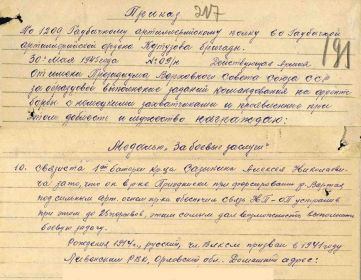 Приказ 217
По 1209 Гаубичному артиллерийскому полку 80 Гаубичной
артиллерийской ордена Кутузова бригады.
191
30 Мая 1945 года № 09/н Действующая армия
От имени Президиума Верховного Совета Союза ССР
за образцовое выполнение заданий командования на фронте
борьбы с немецкими захватчиками и проявленные при
этом доблесть и мужество награждаю:
Медалью „За боевые заслуги"
10. Связиста 1ой батареи Алексея Николаеви-
ча за то, что он в р-не при форсировании р. Варта
под сильным арт. огнём пр-ка обеспечил связь НП-ОП устранив
при этом до 25 порывов, этим самым дал возможность выполнить
боевую задачу.
Рождения 1914 г., русский, чл. ВЛКСМ призван в 1941 году
РВК, Орловской обл. Домашний адрес: